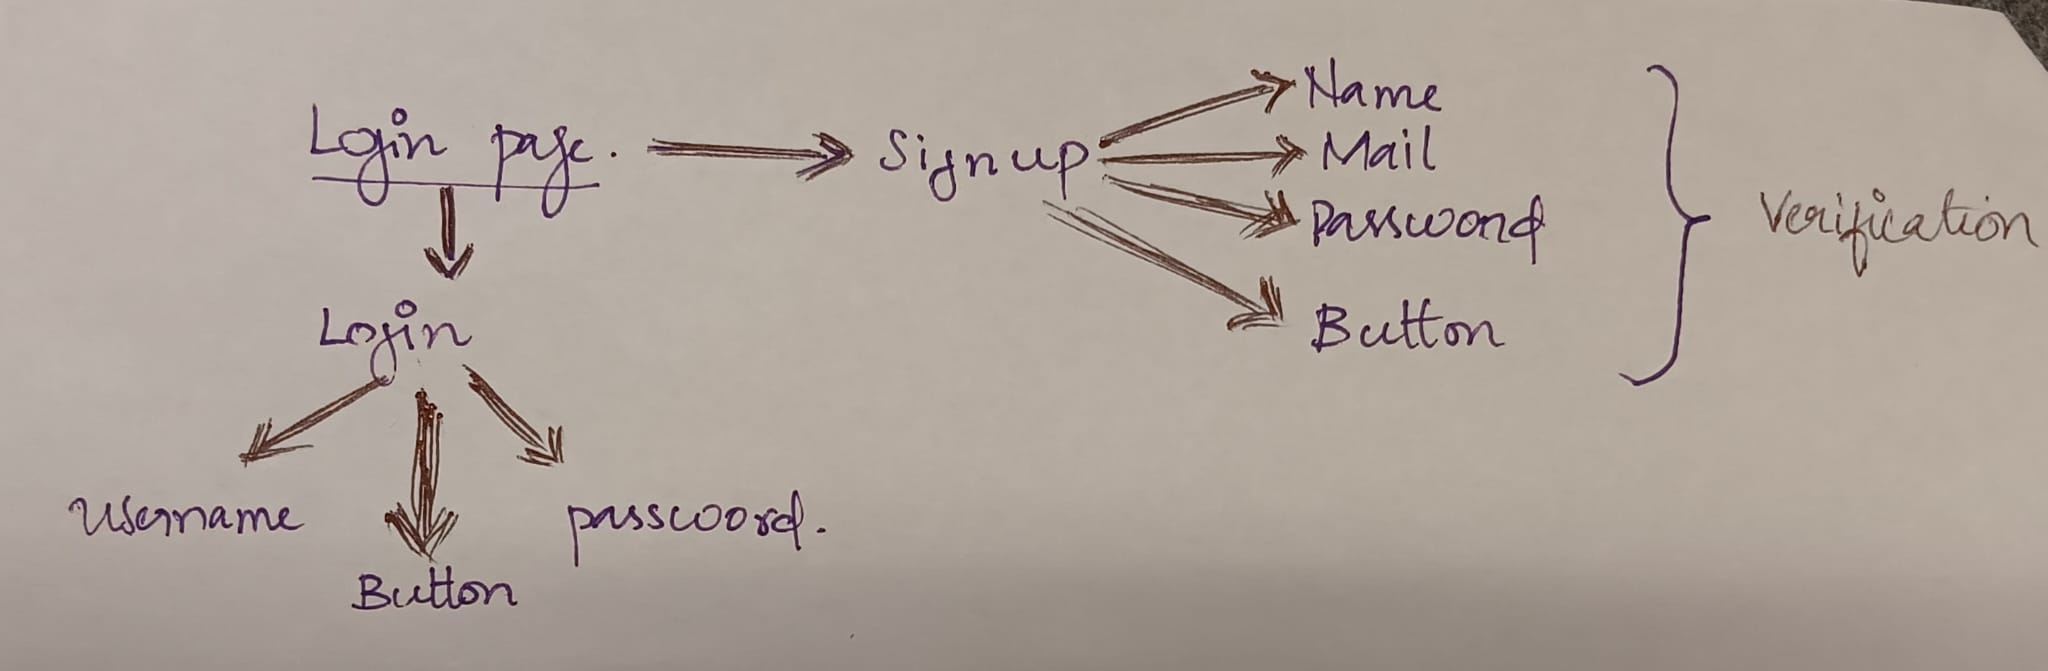 Login page.
Signup
Name
Mail
Password
Button
Verification
Login
Username
Button
password.